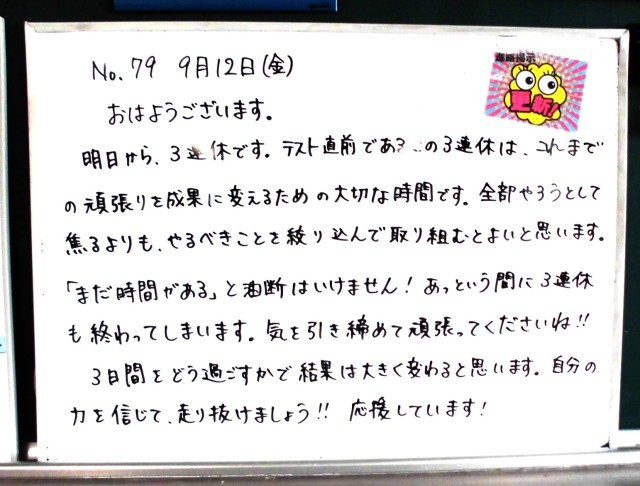 No. 79 9月12日(金)
進路掲示
更新!
おはようございます。
明日から、3連休です。テスト直前であるこの3連休は、これまで
の頑張りを成果に変えるための大切な時間です。全部やろうとして
焦るよりも、やるべきことを絞り込んで取り組むとよいと思います。
「まだ時間がある」と油断はいけません！あっという間に3連休
も終わってしまいます。気を引き締めて頑張ってくださいね!!
3日間をどう過ごすかで結果は大きく変わると思います。自分の
力を信じて、走り抜けましょう!! 応援しています!